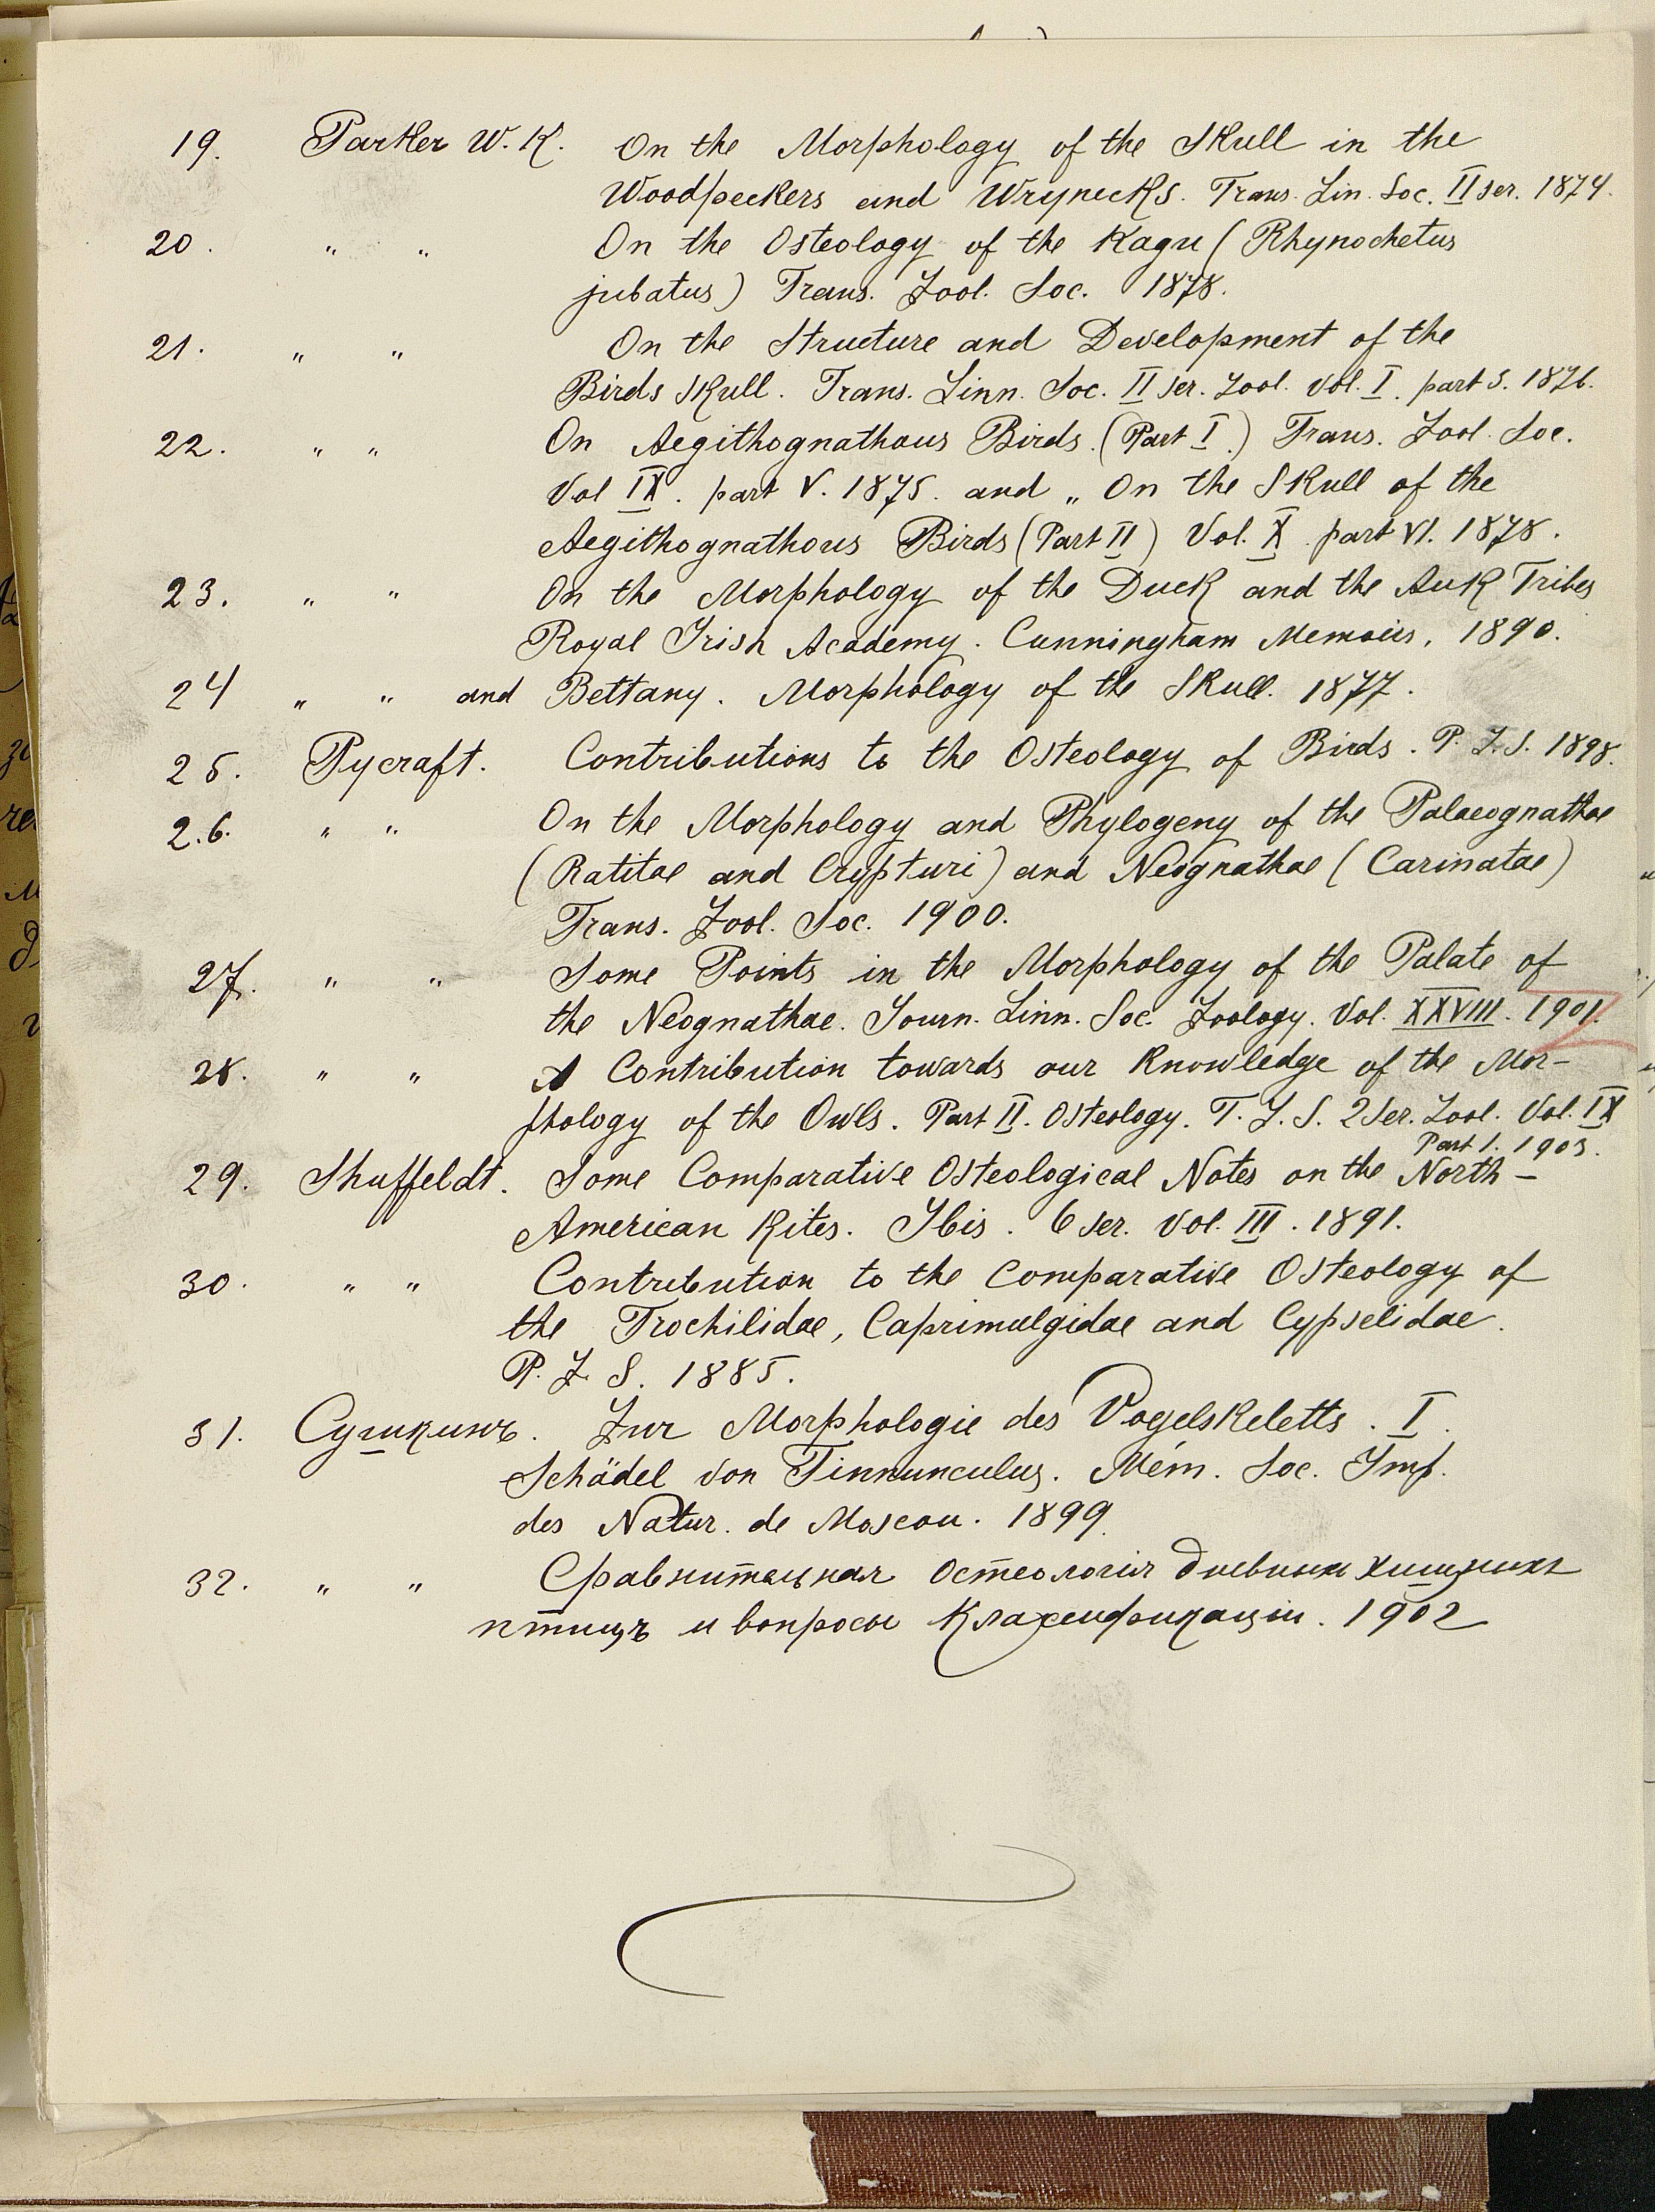 19. Parker W. K. On the Morphology of the Skull in the
Woodpeckers and Wrynecks. Trans. Lin. Soc. II ser. 1874.
20. " " On the Osteology of the Kagu (Rhynochetus
jubatus) Trans. Zool. Soc. 1878.
21. " " On the Structure and Development of the
Birds Skull. Trans. Linn. Soc. II ser. Zool. Vol. I. part 3. 1876.
22. " " On Aegithognathous Birds. (Part I.) Trans. Zool. Soc.
Vol IX. part V. 1875. and „ On the Skull of the
Aegithognathous Birds (Part II) Vol. X part VI. 1878.
23. " " On the Morphology of the Duck and the Auk Tribes
Royal Irish Academy. Cunningham Memoirs, 1890.
24 " " and Bettany. Morphology of the Skull. 1877.
25. Pycraft. Contributions to the Osteology of Birds. P. Z. S. 1898.
26. " " On the Morphology and Phylogeny of the Palaeognathae
(Ratitae and Crypturi) and Neognathae (Carinatae)
Trans. Zool. Soc. 1900.
27. " " Some Points in the Morphology of the Palate of
the Neognathae. Journ. Linn. Soc. Zoology. Vol. XXVIII. 1901.
28. " " A Contribution towards our Knowledge of the Mor-
phology of the Owls. Part II. Osteology. T. L. S. 2 Ser. Zool. Vol. IX
Part 1. 1903.
29. Shuffeldt. Some Comparative Osteological Notes on the North-
American Kites. Ibis. 6 ser. Vol. III. 1891.
30. " " Contribution to the Comparative Osteology of
the Trochilidae, Caprimulgidae and Cypselidae.
P. Z. S. 1885.
31. Сушкинъ. Zur Morphologie des Vogelskeletts. I.
Schädel von Tinnunculus. Mém. Soc. Imp.
des Natur. de Moscou. 1899.
32. " " Сравнительная остеологія дневныхъ хищныхъ
птицъ и вопросы классификаціи. 1902